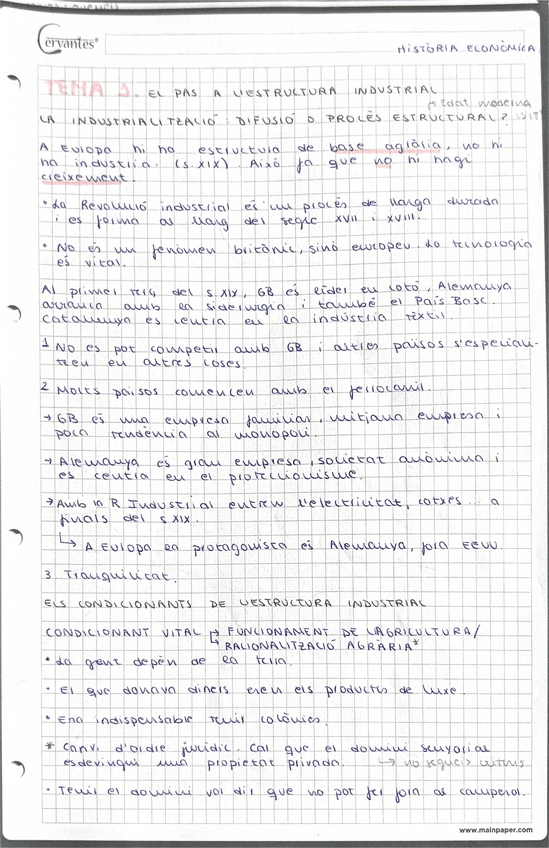 Cervantes®
HISTÒRIA ECONÒMICA.
TEMA 1. EL PAS A L'ESTRUCTURA INDUSTRIAL
edat moderna
LA INDUSTRIALITZACIÓ: DIFUSIÓ O PROCÉS ESTRUCTURAL?
A Europa hi ha estructura de base agrària, no hi
ha indústria. (s.XIX). Això fa que no hi hagi
creixement.
• La Revolució industrial és un procés de llarga durada
i es forma al llarg del segle XVII i XVIII.
• No és un fenòmen britànic, sinó europeu. La tecnologia
és vital.
Al primer terç del s.XIX, GB és líder en cotó, Alemanya
arranca amb la siderurgia i també el País Basc.
Catalunya es centra en la indústria tèxtil.
1 No es pot competir amb GB i altres països s'especialit-
zen en altres coses.
2 Molts països comencen amb el ferrocarril.
→ GB és una empresa familiar, mitjana empresa i
poca tendència al monopoli.
→ Alemanya és gran empresa, societat anònima i
es centra en el proteccionisme.
→ Amb la R. Industrial entren l'electricitat, cotxes... a
finals del s.XIX.
↳ A Europa la protagonista és Alemanya, fora EEUU.
3. Tranquilitat.
ELS CONDICIONANTS DE L'ESTRUCTURA INDUSTRIAL
CONDICIONANT VITAL → FUNCIONAMENT DE L'AGRICULTURA/
↳ RACIONALITZACIÓ AGRÀRIA*
• La gent depèn de la terra.
• El que donava diners eren els productes de luxe.
• Era indispensable tenir colònies.
* Canvi d'ordre jurídic. Cal que el domini senyorial
esdevingui una propietat privada. ↳ no segueix criteris
• Tenir el domini vol dir que no pot fer fora al camperol.
www.mainpaper.com